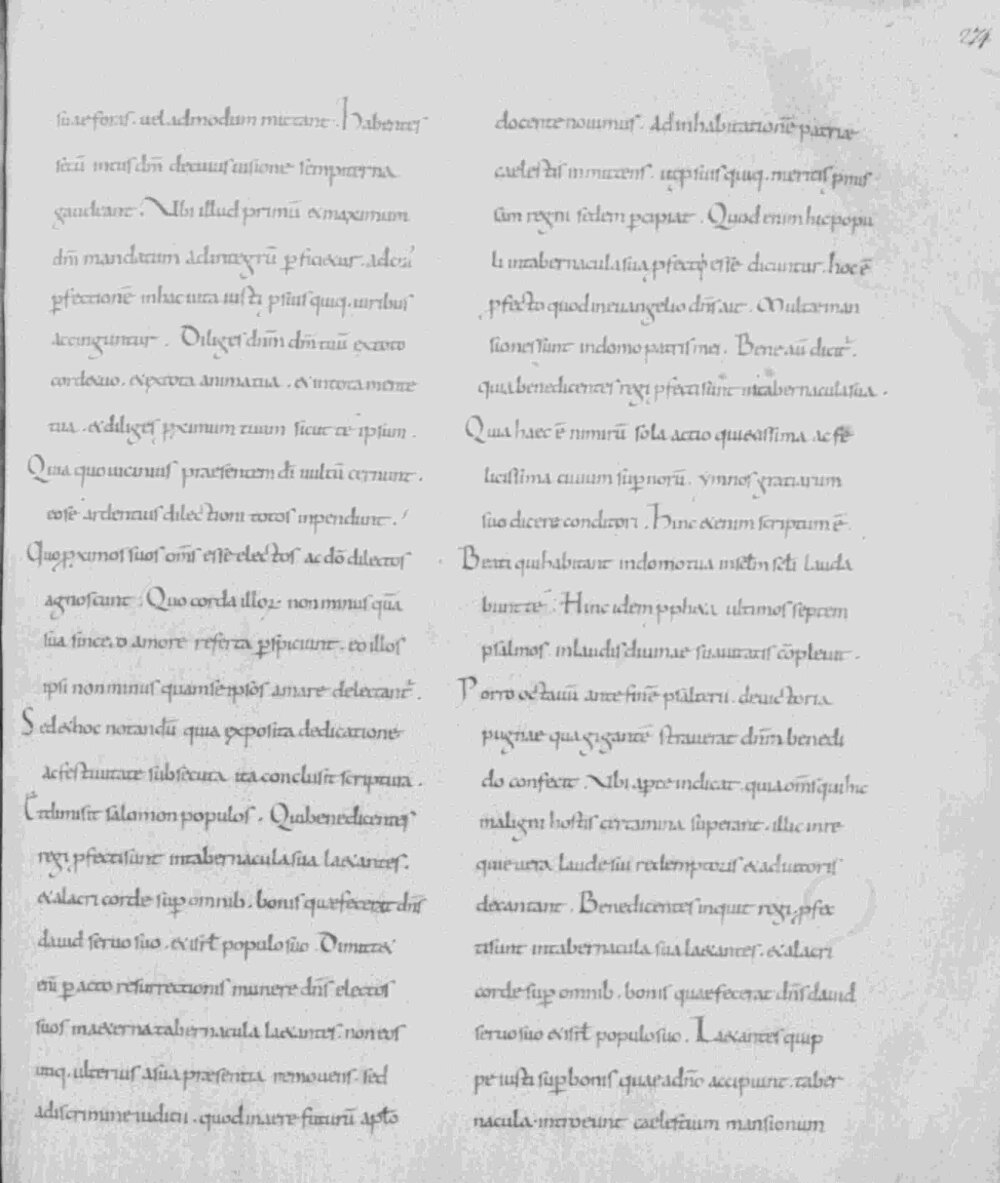 274
suae foris. uel admodum mictant. Habentes
secū intus dm̄ de cuius uisione sempiterna
gaudeant. Ubi illud primū & maximum
dm̄ mandatum ad integrū ꝑficietur. ad cuiꝰ
ꝑfectionē in hac uita iusti ꝓ suis quiq. uiribus
accinguntur. Diliges dnm dm̄ tuū ex toto
corde tuo. & ex tota anima tua. & in tota mente
tua. & diliges ꝓximum tuum sicut te ipsum.
Quia quo uicinius praesentem dī uultū cernunt.
eo se ardentius dilectioni totos inpendunt.
Quo ꝓximos suos om̄s esse electos ac dō dilectos
agnoscunt. Quo corda illoꝝ non minus quā
sua sincero amore referta ꝑspiciunt. eo illos
ipsi non minus quam se ipsos amare delectant᷑.
Sed & hoc notandū quia exposita dedicatione
ac festiuitate subsecuta ita conclusit scriptura.
Et dimisit salomon populos. Qui benedicentes
regi ꝓfecti sunt in tabernacula sua laetantes.
& alacri corde suꝑ omnib. bonis quae fecerat dn̄s
dauid seruo suo. & isrł populo suo. Dimittet
eni ꝑacto resurrectionis munere dn̄s electos
suos in aeterna tabernacula laetantes. non eos
utiq. ulterius a sua praesentia remouens. sed
a discrimine iudicii. quod in aere futurū apło
docente nouimus. Ad inhabitationē patriae
caelestis inmittens. ut ꝓ suis quiq. meritis pmis
sam regni sedem ꝑcipiat. Quod enim hic popu
li in tabernacula sua ꝓfecti esse dicuntur. hoc ē
ꝓfecto quod in euangelio dn̄s ait. Multae man
siones sunt in domo patris mei. Bene au dicit᷑.
quia benedicentes regi ꝓfecti sunt in tabernacula sua.
Quia haec ē nimirū sola actio quietissima ac fe
licissima ciuium suꝑnorū. ymnos gratiarum
suo dicere conditori. Hinc etenim scriptum ē.
Beati qui habitant in domo tua in sctm scti lauda
bunt te. Hinc idem ꝓpheta ultimos septem
psalmos. in laudis diuinae suauitatis cōpleuit.
Porro octauū ante finē psalterii. de uictoria
pugnae qua gigantē strauerat dnm benedi
do confecit. Ubi aꝑte indicat. quia om̄s qui hic
maligni hostis certamina superant. illic in re
quie uera laude sui redemptoris & adiutoris
decantant. Benedicentes inquit regi. ꝓfec
ti sunt in tabernacula sua laetantes. & alacri
corde suꝑ omnib. bonis quae fecerat dn̄s dauid
seruo suo & isrł populo suo. Laetantes quip
pe iusti suꝑ bonis quae a dn̄o accipiunt. taber
nacula introeunt caelestium mansionum